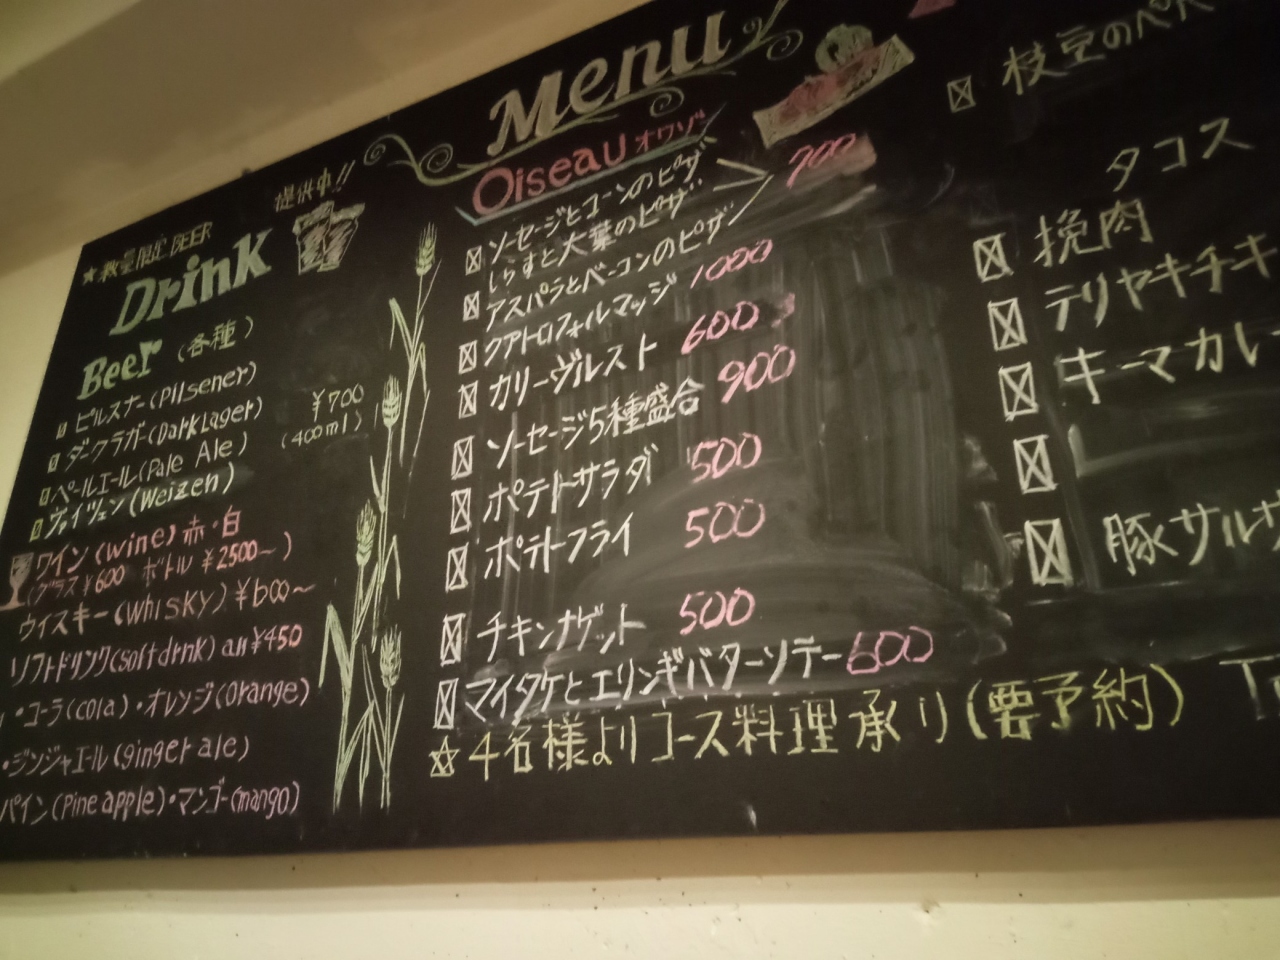 ★数量限定BEER
提供中!!
Drink
Beer (各種)
ピルスナー(Pilsener)
ダークラガー(DarkLager)
ペールエール(Pale Ale)
ヴァイツェン(Weizen)
¥700
(400ml)
ワイン(wine)赤・白
(グラス¥600 ボトル ¥2500~)
ウイスキー(whisky)¥600~
ソフトドリンク(softdrnk) all ¥450
・コーラ(cola)・オレンジ(orange)
・ジンジャエール(ginger ale)
パイン(Pine apple)・マンゴー(mango)
Menu
Oiseau オワゾー
ソーセージとコーンのピザ
しらすと大葉のピザ
アスパラとベーコンのピザ
700
クアトロフォルマッジ 1000
カリーヴルスト 600
ソーセージ5種盛合 900
ポテトサラダ 500
ポテトフライ 500
チキンナゲット 500
マイタケとエリンギバターソテー 600
☆4名様よりコース料理承り(要予約)
枝豆のペペ
タコス
挽肉
テリヤキチキ
キーマカレ
豚サルサ